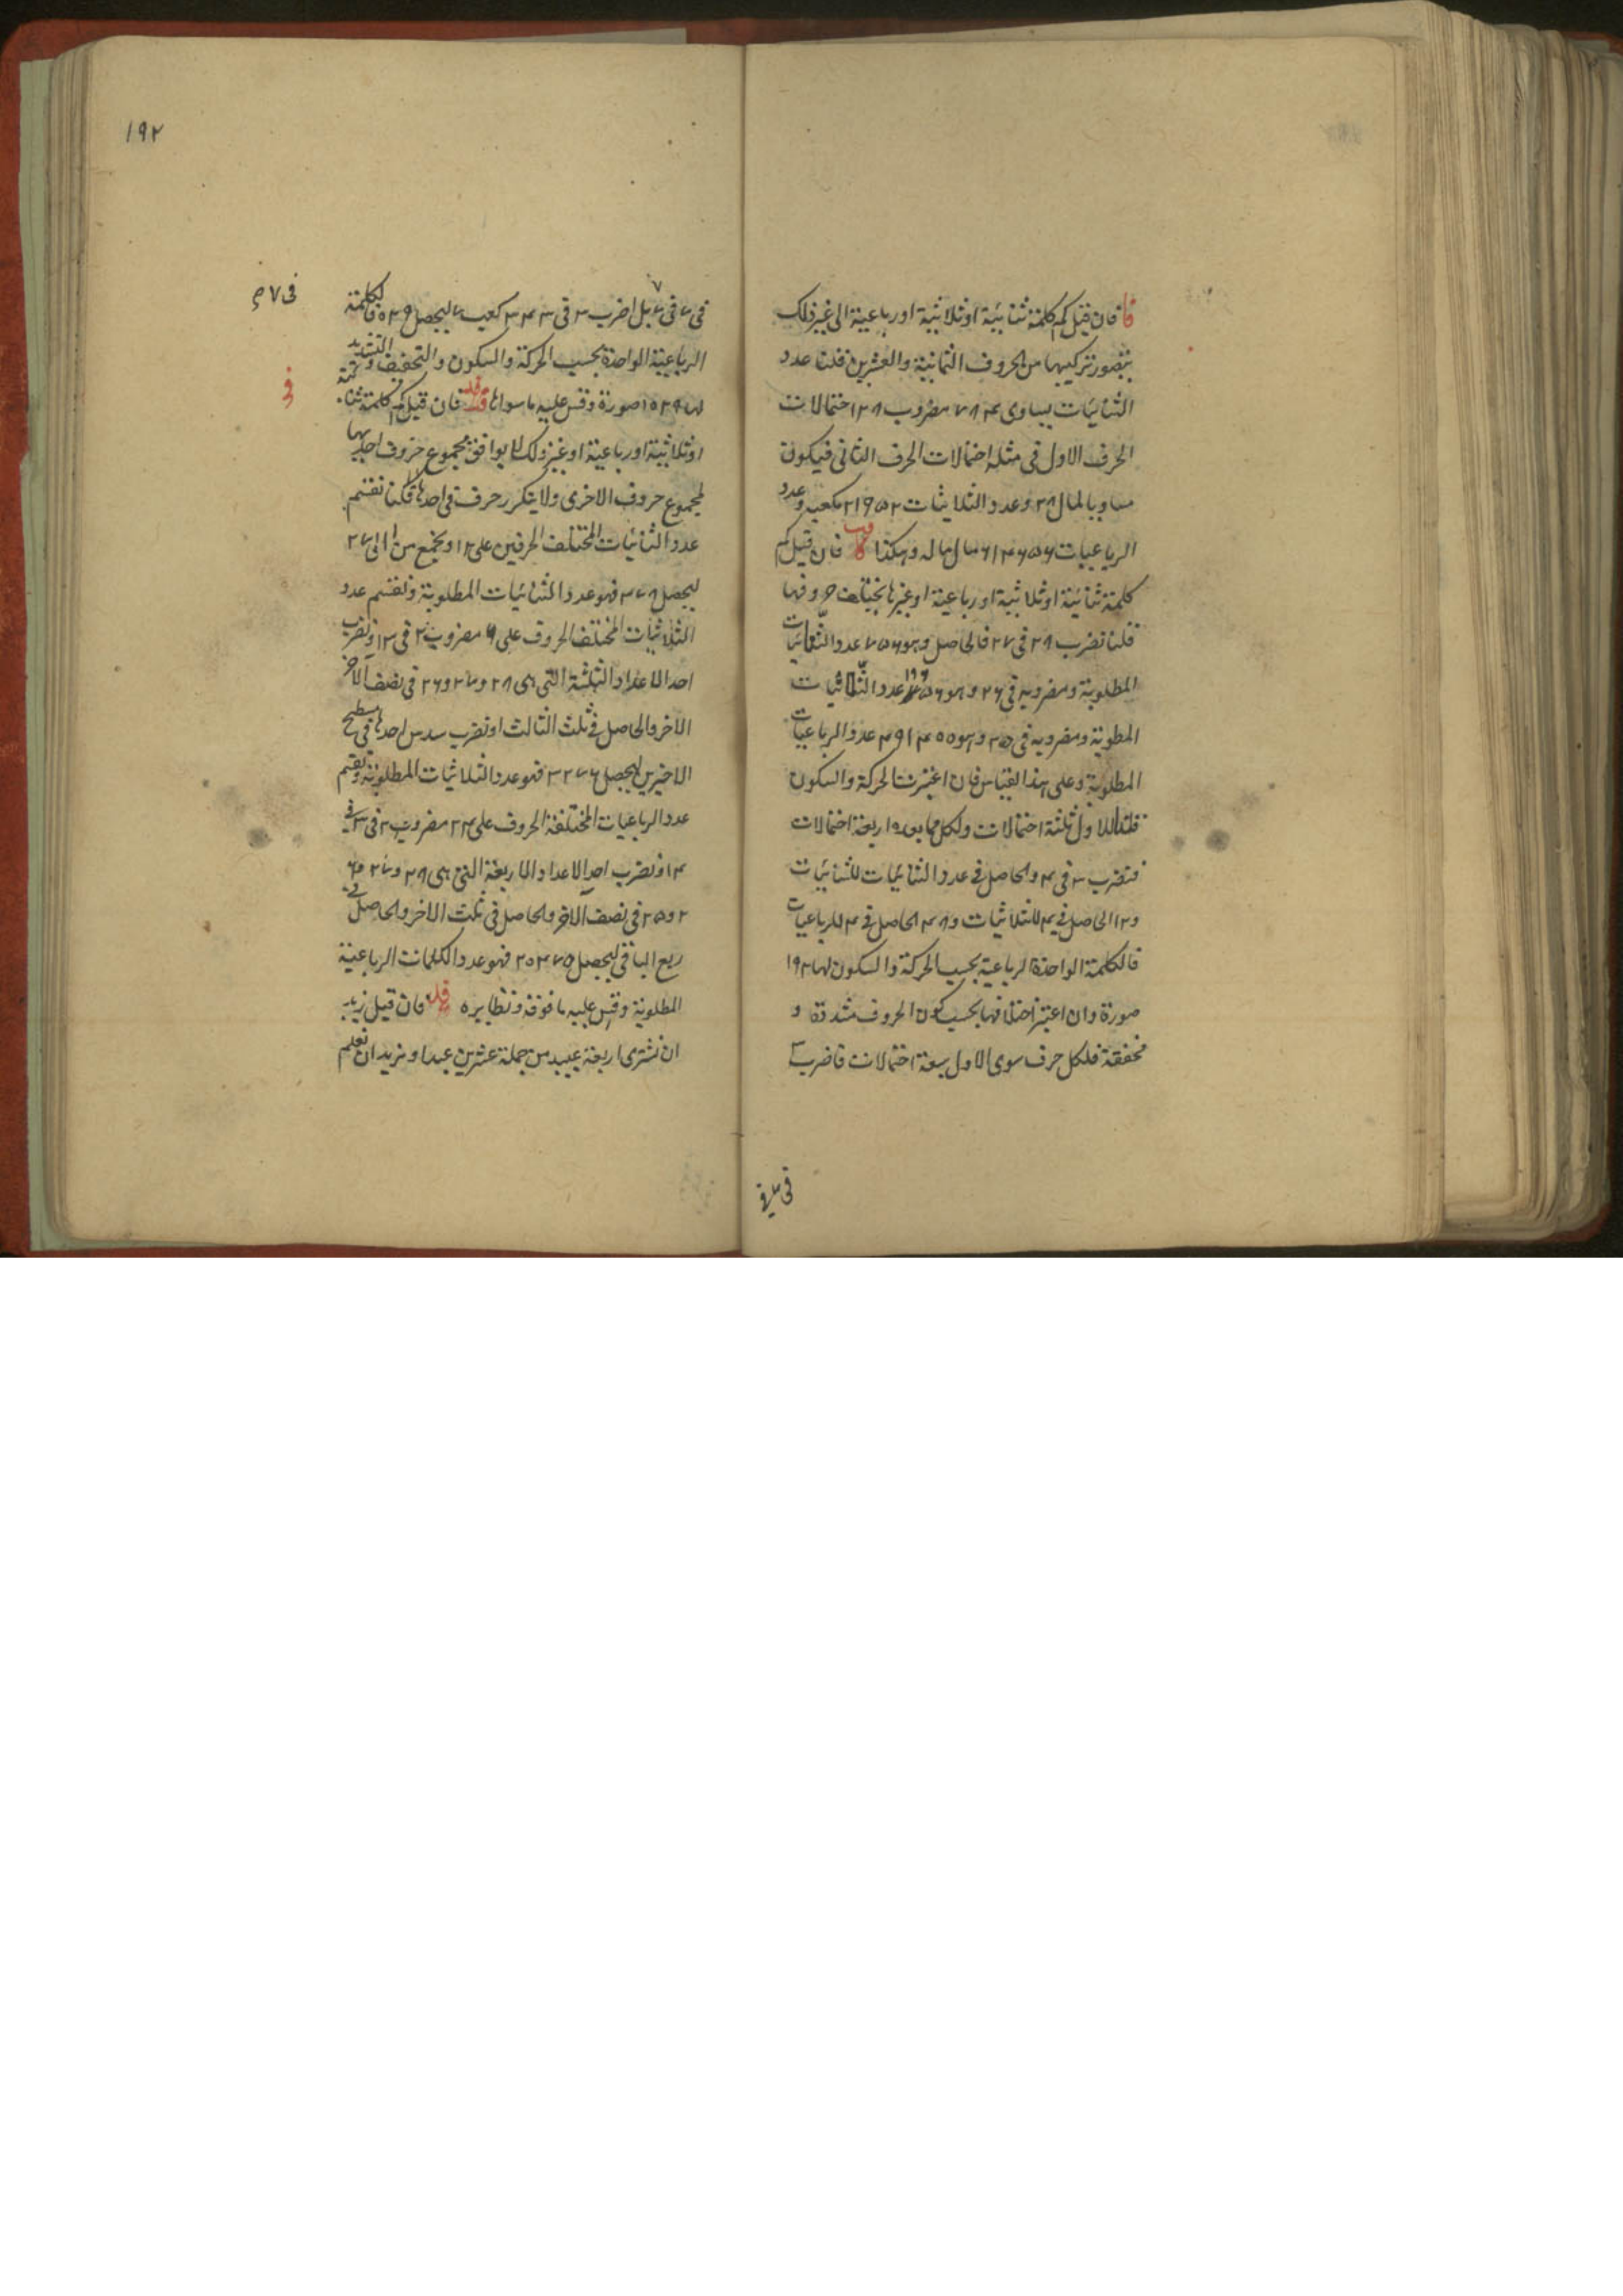 فا فان قيل كم كلمة ثنائية او ثلاثية او رباعية الى غير ذلك
يتصور تركيبها من الحروف الثمانية والعشرين قلنا عدد
الثنائيات يساوى ٧٨٤ مضروب ٢٨ احتمالات
الحرف الاول فى مثله احتمالات الحرف الثانى فيكون
مساويا لمال ٢٨ وعدد الثلاثيات ٢١٩٥٢ مكعبه وعدد
الرباعيات ٦١٤٦٥٦ مال ماله وهكذا فان قيل كم
كلمة ثنائية او ثلاثية او رباعية او غيرها يختلف حروفها
قلنا نضرب ٢٨ فى ٢٧ فالحاصل وهو ٧٥٦ عدد الثنائيات
المطلوبة ومضروبه فى ٢٦ وهو ١٩٦٥٦ عدد الثلاثيات
المطلوبة ومضروبه فى ٢٥ وهو ٤٩١٤٠٠ عدد الرباعيات
المطلوبة وعلى هذا القياس فان اعتبرت الحركة والسكون
فللاول ثلثة احتمالات ولكل مما بعده اربعة احتمالات
فتضرب ٣ فى ٤ والحاصل فى عدد الثنائيات للثنائيات
و١٢ الحاصل فى ٤ للثلاثيات و٤٨ الحاصل فى ٤ للرباعيات
فالكلمة الواحدة الرباعية بحسب الحركة والسكون لها ١٩٢
صورة وان اعتبر اختلافها بحسب كون الحروف مشددة و
مخففة فلكل حرف سوى الاول سبعة احتمالات فاضرب ٣
فى ٧ فى
١٩٢
فى ٧ فى ٧ بل اضرب ٣ فى ٣٤٣ كعب ٧ ليحصل ١٠٢٩ فالكلمة
فى ٧ ص
الرباعية الواحدة بحسب الحركة والسكون والتخفيف والتشديد
لها ١٠٢٩ صورة وقس عليه ما سواها فان قيل كم كلمة ثنائية
او ثلاثية او رباعية او غير ذلك لا يوافق مجموع حروف احديها
لمجموع حروف الاخرى ولا يتكرر حرف فى احدها قلنا نقسم
عدد الثنائيات المختلف الحرفين على ٢ او نجمع من ١ الى ٢٧
ليحصل ٣٧٨ فهو عدد الثنائيات المطلوبة ونقسم عدد
الثلاثيات المختلف الحروف على ٦ مضروب ٢ فى ٣ او نضرب
احد الاعداد الثلثة التى هى ٢٨ و٢٧ و٢٦ فى نصف الاخر
الاخر والحاصل فى ثلث الثالث او نضرب سدس احدها فى مسطح
الاخيرين ليحصل ٣٢٧٦ فهو عدد الثلاثيات المطلوبة ونقسم
عدد الرباعيات المختلفة الحروف على ٢٤ مضروب ٢ فى ٣ فى
٤ او نضرب احد الاعداد الاربعة التى هى ٢٨ و٢٧ و٢٦
و٢٥ فى نصف الاخر والحاصل فى ثلث الاخر والحاصل فى
ربع الباقى ليحصل ٢٠٤٧٥ فهو عدد الكلمات الرباعية
المطلوبة وقس عليه ما فوقه ونظايره فان قيل نريد
ان نشترى اربعة عبيد من جملة عشرين عبدا ونريد ان نعلم